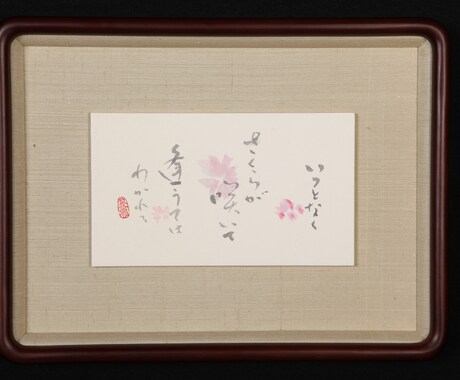 いつとなく
さくらが
咲いて
逢うては
わかれる